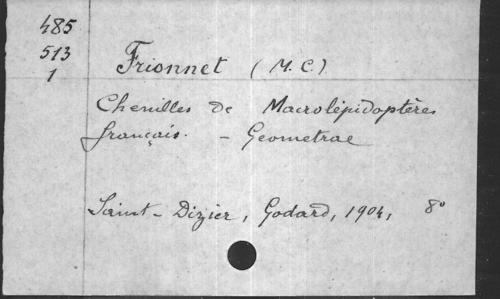 485
513
1
Frionnet (M. C.)
Chenilles de Macrolépidoptères
français. - Geometrae
Saint-Dizier, Godard, 1904, 8°